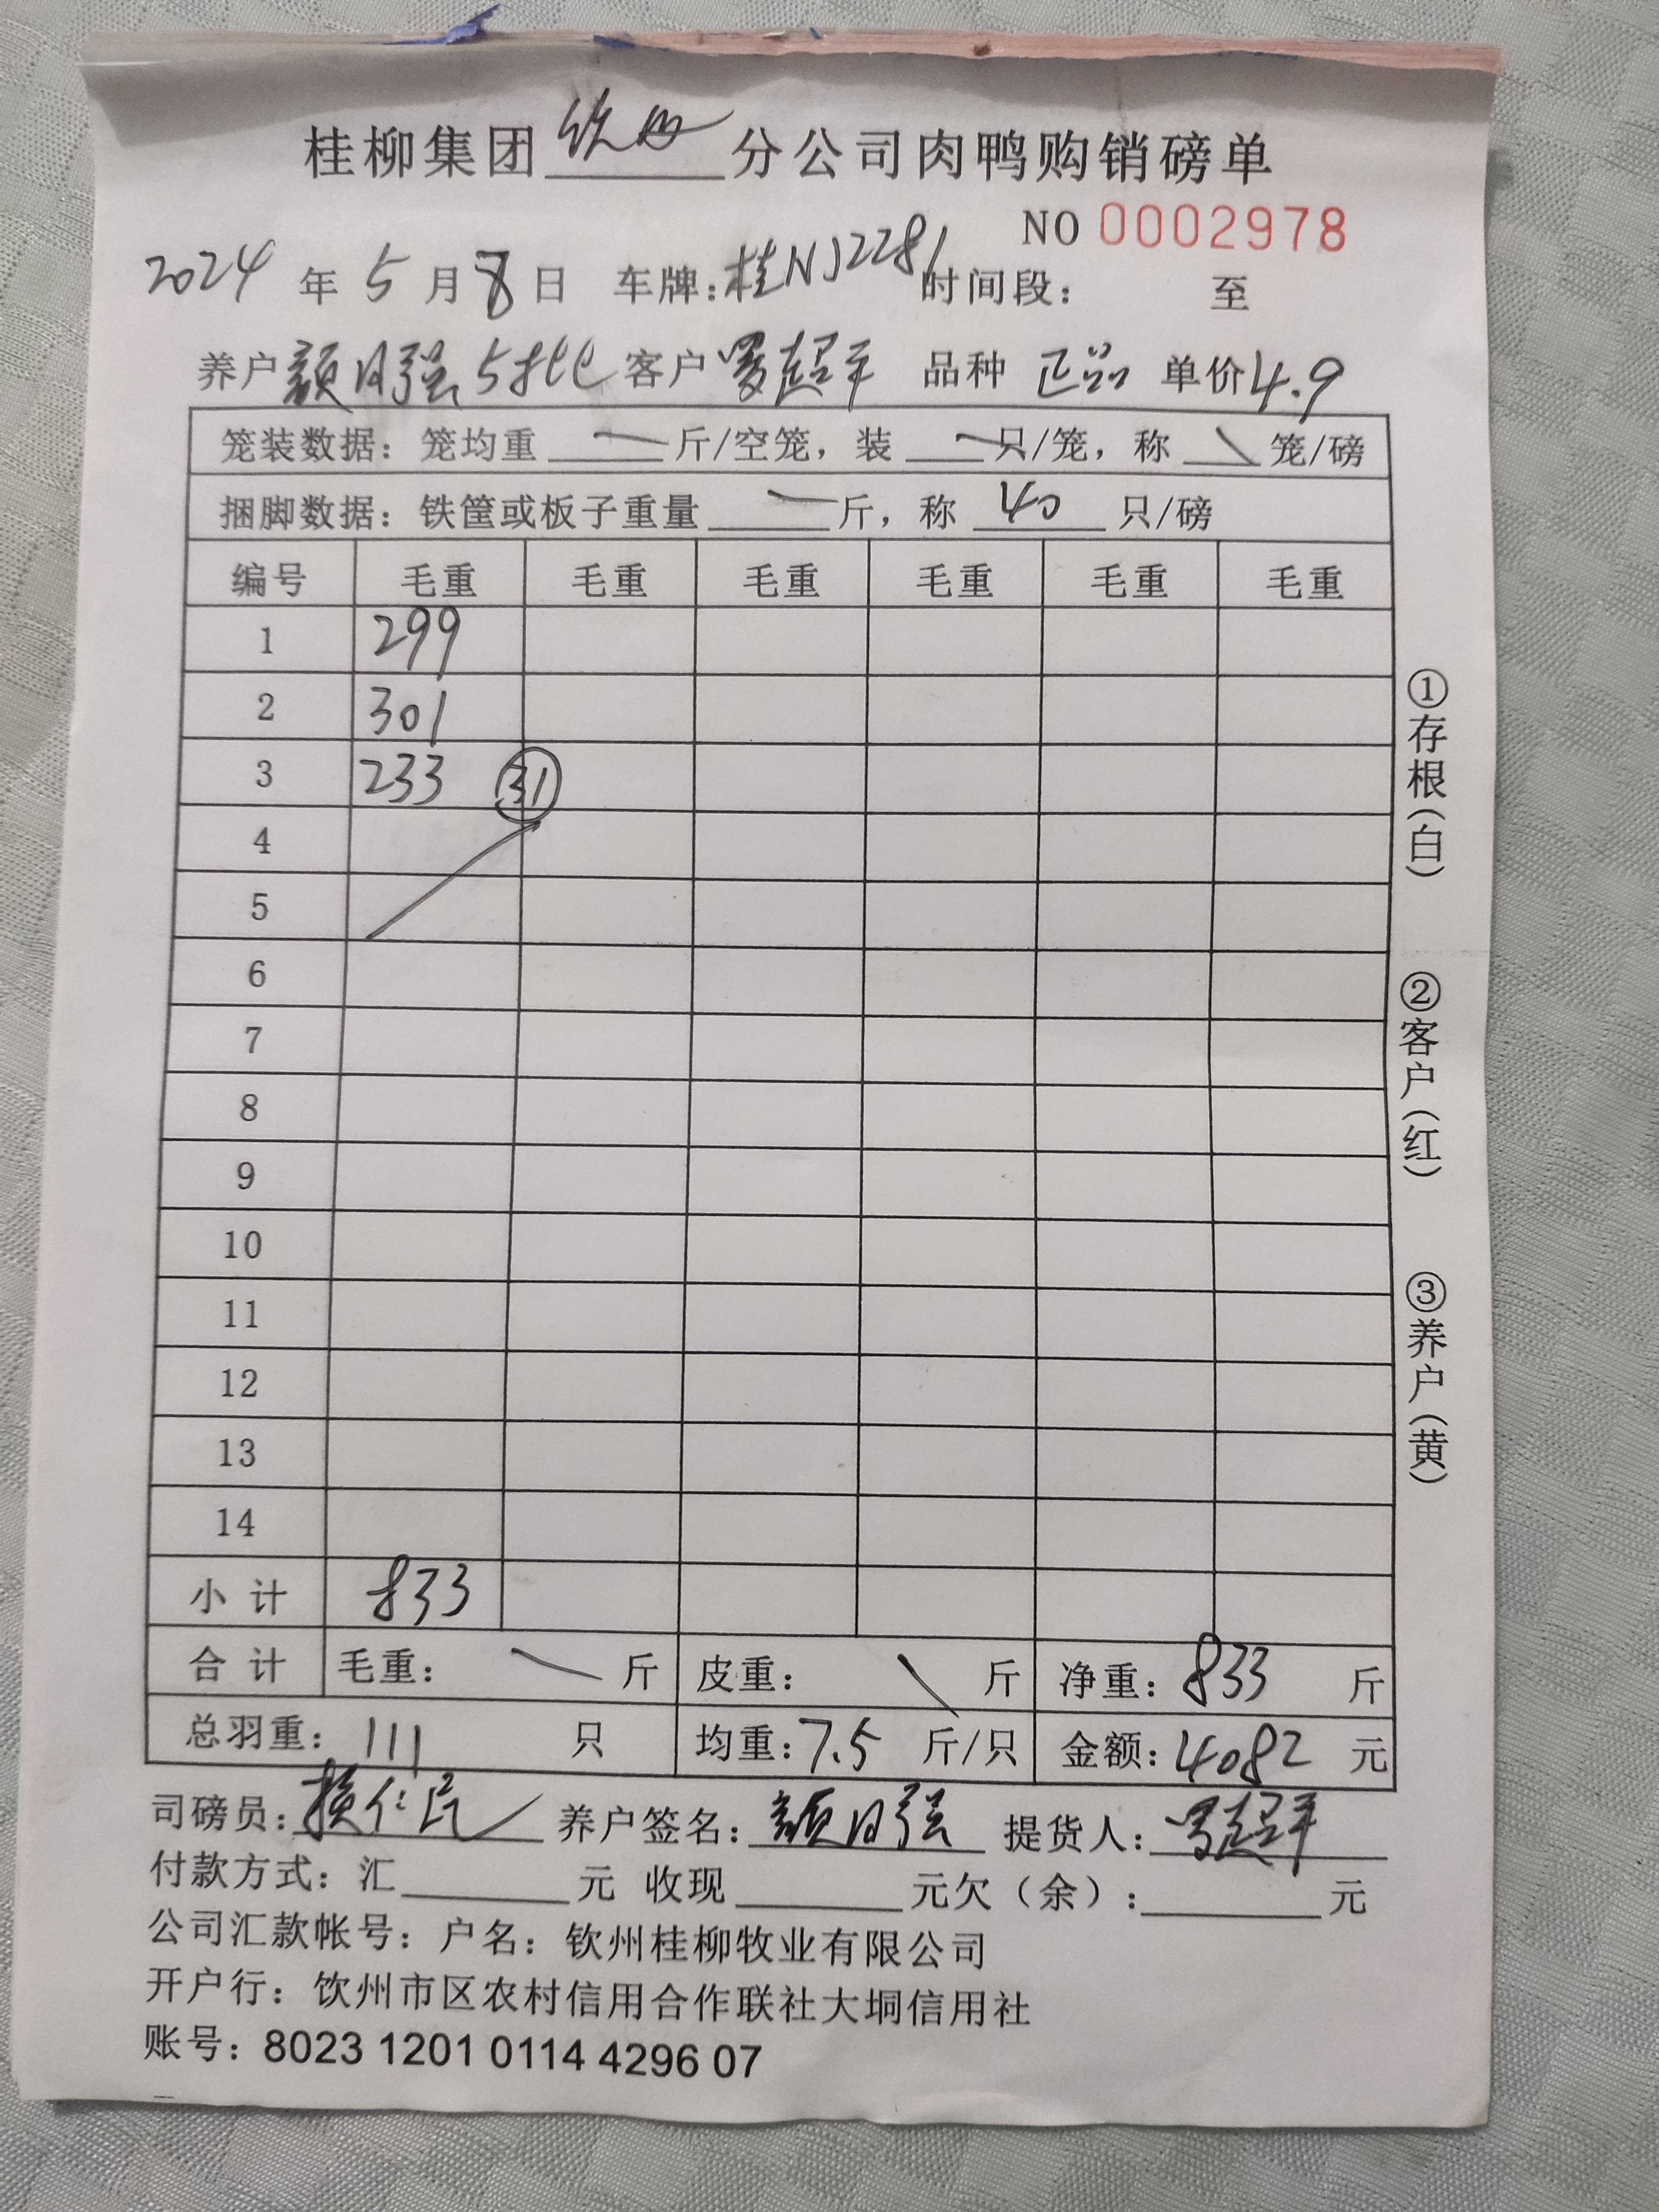 桂柳集团钦州分公司肉鸭购销磅单
NO 0002978
2024年5月8日 车牌:桂NJ2281 时间段: 至
养户 颜日强5批 客户 罗超平 品种 正品 单价4.9
笼装数据: 笼均重 斤/空笼, 装 只/笼, 称 笼/磅
捆脚数据: 铁筐或板子重量 斤, 称 40 只/磅
编号 毛重 毛重 毛重 毛重 毛重 毛重
1 299
2 301
3 233 31
4
5
6
7
8
9
10
11
12
13
14
小计 833
合计 毛重: 斤 皮重: 斤 净重: 833 斤
总羽重: 111 只 均重: 7.5 斤/只 金额: 4082 元
司磅员: 养户签名: 颜日强 提货人: 罗超平
付款方式: 汇 元 收现 元欠(余): 元
公司汇款帐号: 户名: 钦州桂柳牧业有限公司
开户行: 钦州市区农村信用合作联社大垌信用社
账号: 8023 1201 0114 4296 07
①存根(白)
②客户(红)
③养户(黄)